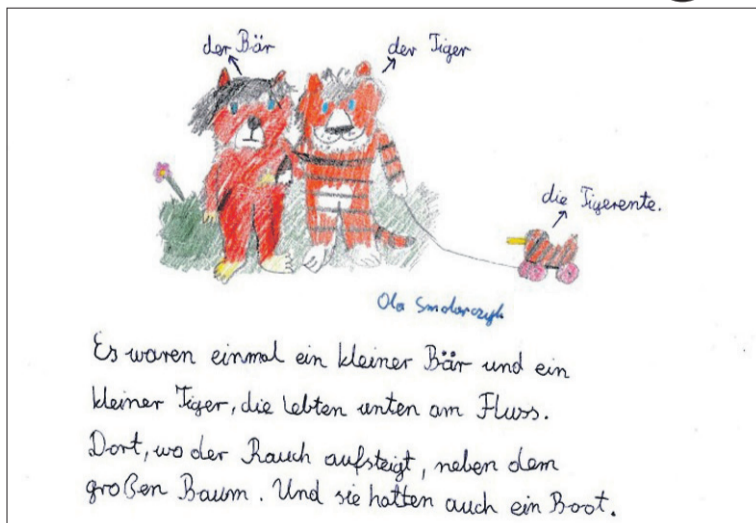 der Bär
der Tiger
die Tigerente.
Ola Smolarczyk
Es waren einmal ein kleiner Bär und ein
kleiner Tiger, die lebten unten am Fluss.
Dort, wo der Rauch aufsteigt, neben dem
großen Baum. Und sie hatten auch ein Boot.